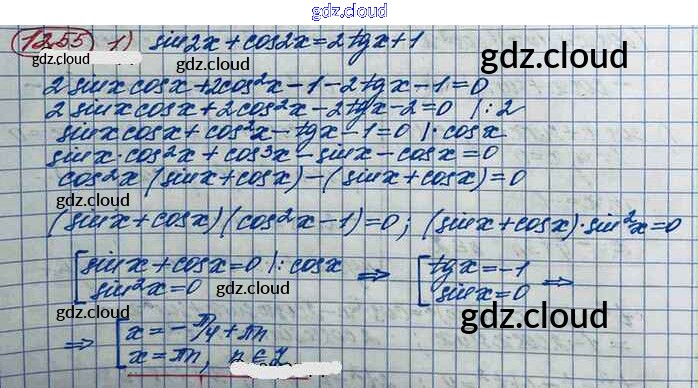 gdz.cloud
12.55 1) sin2x + cos2x = 2tgx + 1
gdz.cloud
2sinxcosx + 2cos²x - 1 - 2tgx - 1 = 0
2sinxcosx + 2cos²x - 2tgx - 2 = 0 |:2
sinxcosx + cos²x - tgx - 1 = 0 |·cosx
gdz.cloud
sinx·cos²x + cos³x - sinx - cosx = 0
cos²x (sinx + cosx) - (sinx + cosx) = 0
gdz.cloud
(sinx + cosx)(cos²x - 1) = 0; (sinx + cosx)·sin²x = 0
gdz.cloud
[ sinx + cosx = 0 |:cosx ⇒ [ tgx = -1 ⇒
sin²x = 0 sinx = 0
gdz.cloud
gdz.cloud
gdz.cloud
⇒ [ x = -π/4 + πn
x = πn, n ∈ Z